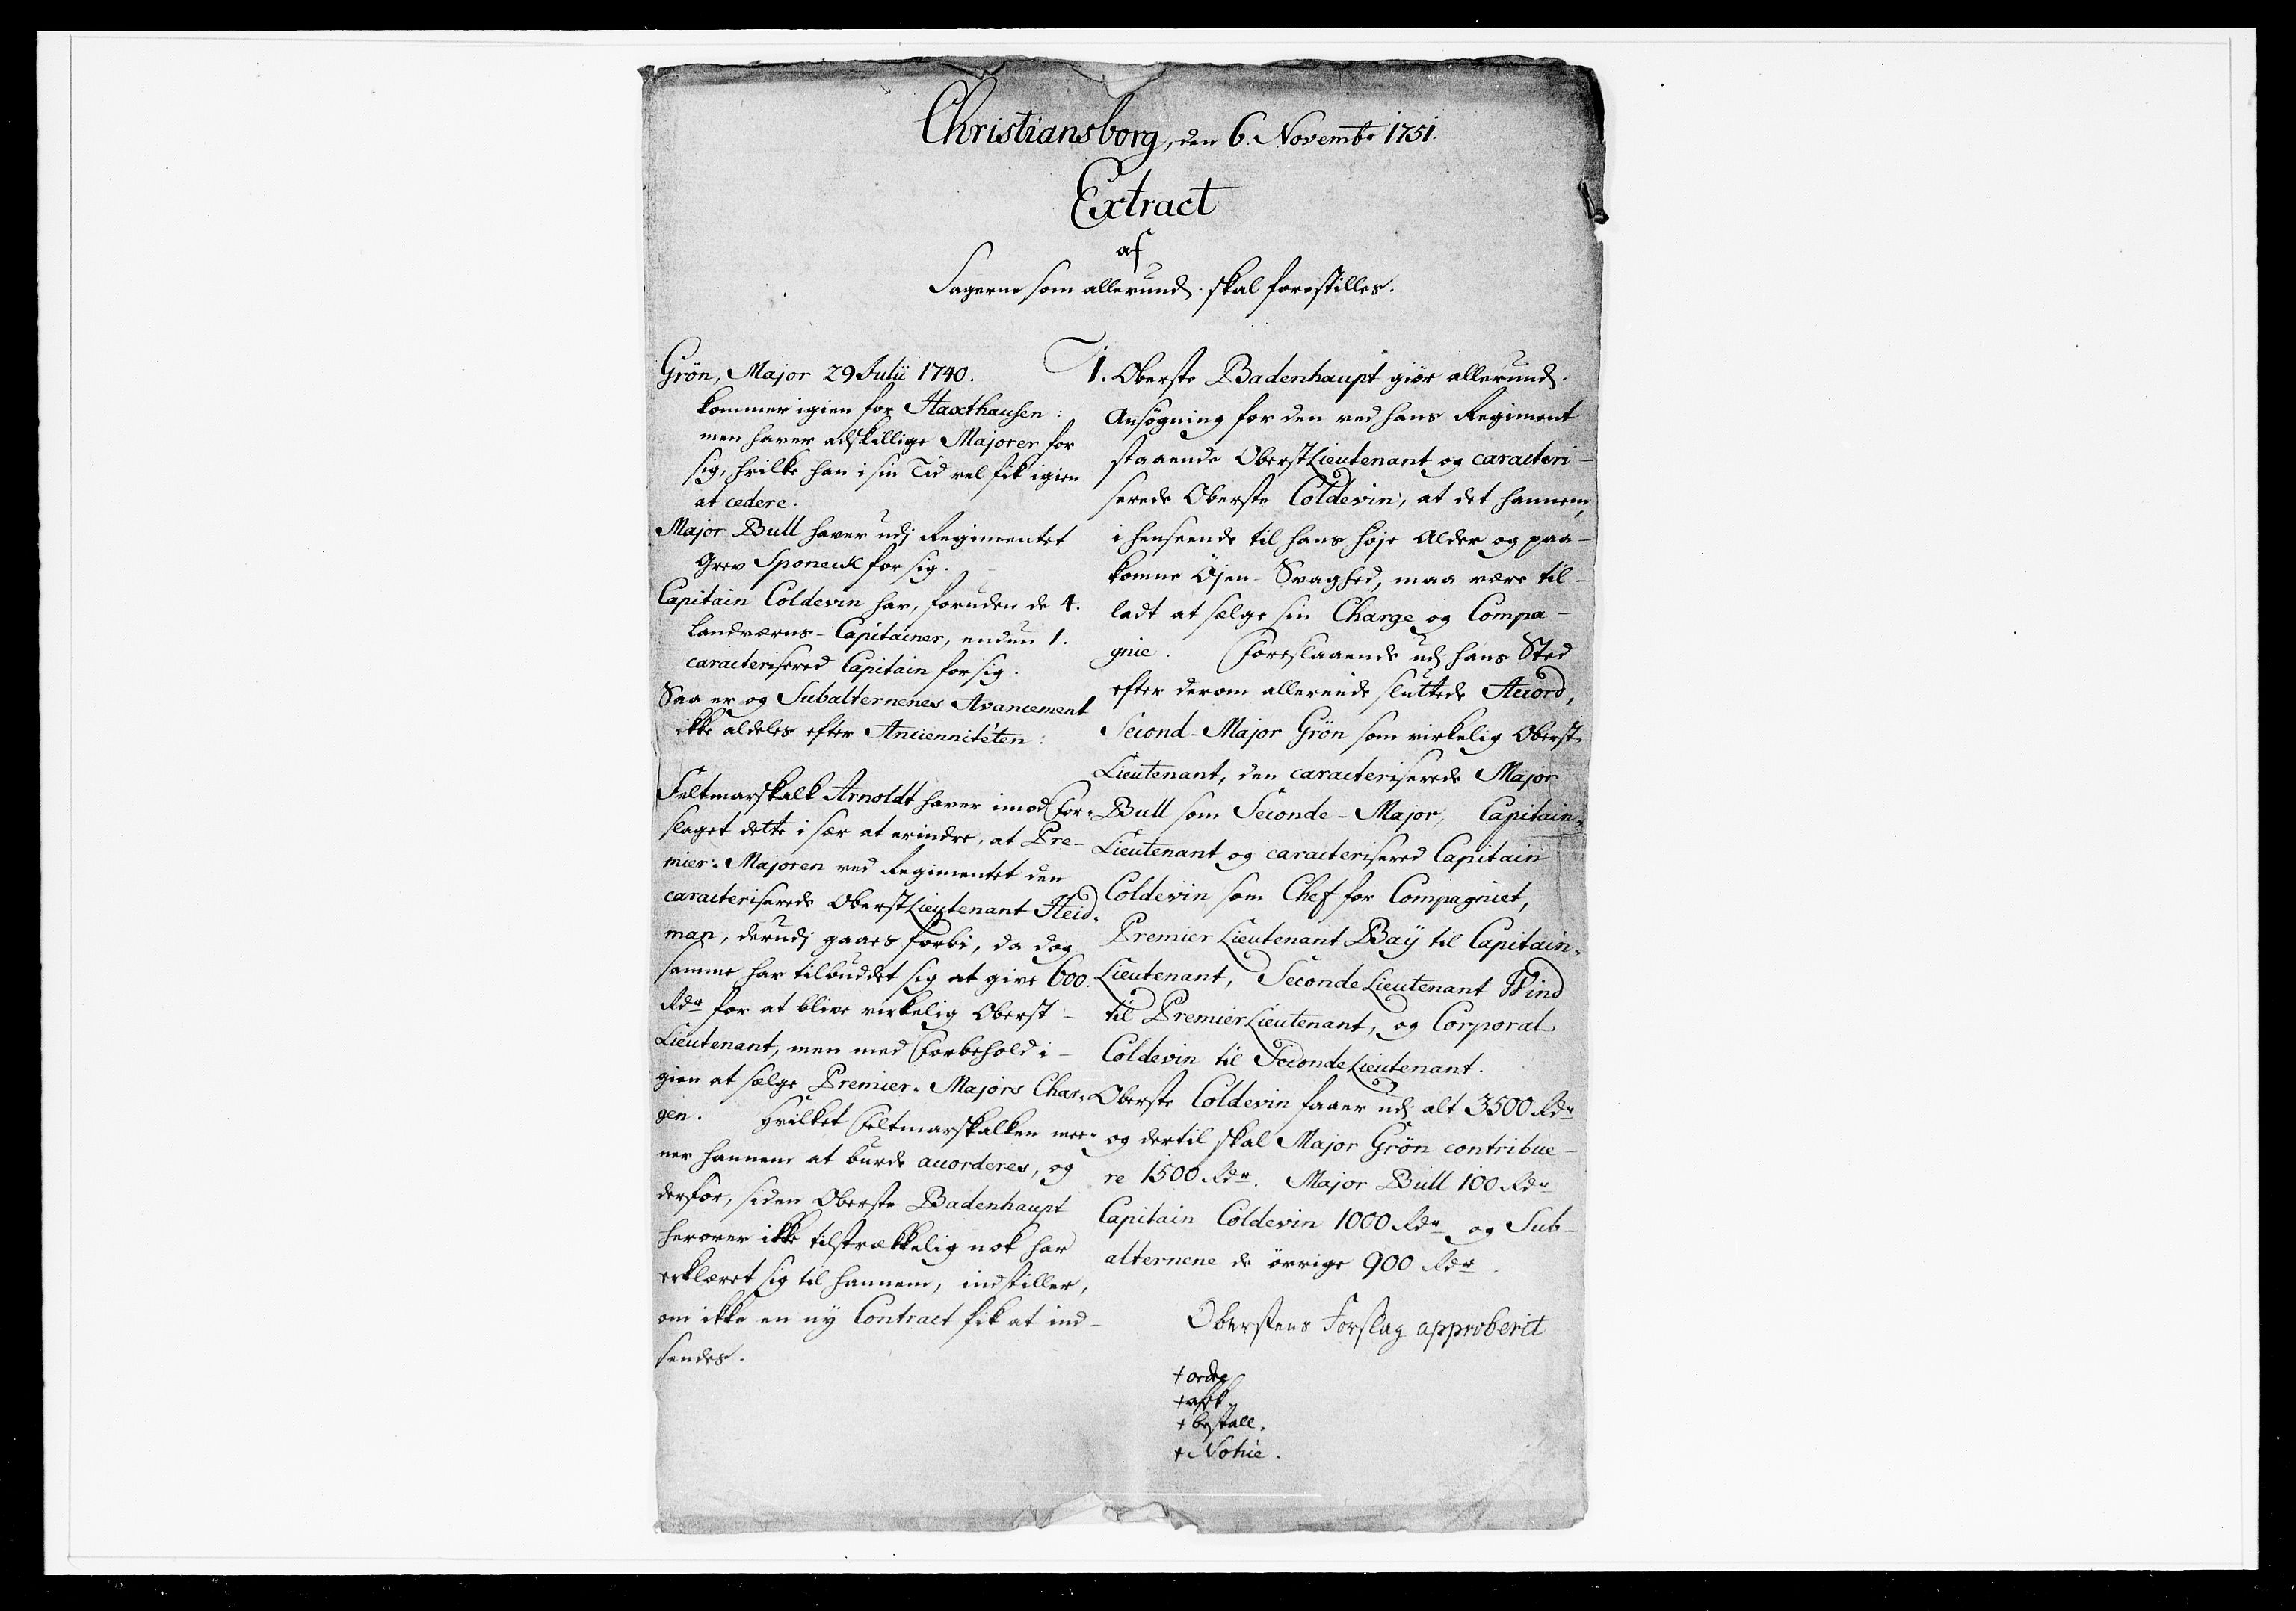 Christiansborg, den 6. Novembr 1751.
Extract
af
Sagerne som allerund. skal forestilles.
Grön, Major 29 Julii 1740.
kommer igien for Haxthausen:
men haver adskillige Majorer for
sig, hvilke han i sin Tid vel fik igien
at cedere.
Major Bull haver udj Regimentet
Grev Sponeck for sig.
Capitain Coldevin har, foruden de 4.
Landværns-Capitainer, endnu 1.
caracteriseret Capitain for sig.
Saa er og Subalternenes Avancement
ikke aldeles efter Anciennitéten:
Feltmarskalk Arnoldt haver imod For-
slaget dette i sær at erindre, at Pre-
mier-Majoren ved Regimentet den
caracteriserede OberstLieutenant Heid-
man, derudj gaaes forbi, da dog
samme har tilbuddet sig at give 600.
Rdr for at blive virkelig Oberst-
Lieutenant, men med Forbehold i-
gien at sælge Premier-Majors Char-
gen. Hvilket Feltmarskalken mee-
ner hannem at burde accorderes, og
derfor, siden Oberste Badenhaupt
herover ikke tilstrækkelig nok har
erklæret sig til hannem, indstiller,
om ikke en ny Contract fik at ind-
sendes.
1. Oberste Badenhaupt giør allerund.
Ansøgning for den ved hans Regiment
staaende OberstLieutenant og caracteri-
serede Oberste Coldevin, at det hannem,
i henseende til hans høje Alder og paa-
komne Øjen-Svaghed, maa være til-
ladt at sælge sin Charge og Compa-
gnie. Foreslaaende udj hans Sted
efter derom allereede sluttede Accord,
Second-Major Grön som virkelig Oberst-
Lieutenant, den caracteriserede Major
Bull som Seconde-Major, Capitain-
Lieutenant og caracteriseret Capitain
Coldevin som Chef for Compagniet,
Premier Lieutenant Baÿ til Capitain-
Lieutenant, Seconde Lieutenant Wind
til PremierLieutenant, og Corporal
Coldevin til SecondeLieutenant.
Oberste Coldevin faaer udj alt 3500 Rdr
og dertil skal Major Grön contribue-
re 1500 Rdr. Major Bull 100 Rdr
Capitain Coldevin 1000 Rdr og Sub-
alternene de øvrige 900 Rdr.
Oberstens Forslag approberit
+ ordre
+ afsk.
+ bestall.
+ Notice.